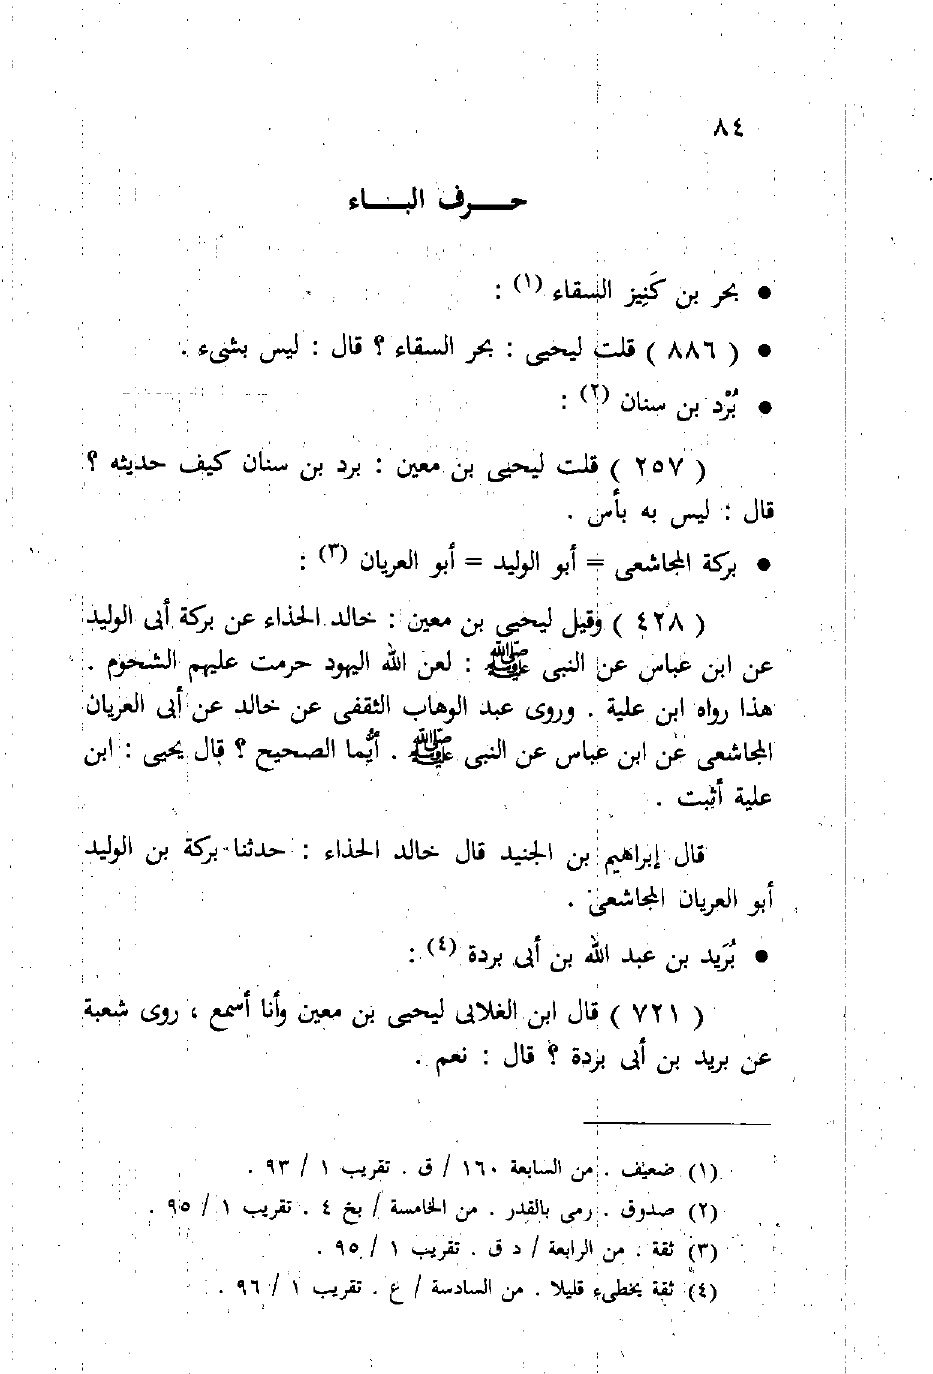 ٨٤
حرف الباء
● بحر بن كَنِيز السقاء (١) :
● ( ٨٨٦ ) قلت ليحيى : بحر السقاء ؟ قال : ليس بشىء .
● بُرْد بن سنان (٢) :
( ٢٥٧ ) قلت ليحيى بن معين : برد بن سنان كيف حديثه ؟
قال : ليس به بأس .
● بركة المجاشعى = أبو الوليد = أبو العريان (٣) :
( ٤٢٨ ) وقيل ليحيى بن معين : خالد الحذاء عن بركة أبى الوليد
عن ابن عباس عن النبى ﷺ : لعن الله اليهود حرمت عليهم الشحوم .
هذا رواه ابن علية . وروى عبد الوهاب الثقفى عن خالد عن أبى العريان
المجاشعى عن ابن عباس عن النبى ﷺ . أيُّما الصحيح ؟ قال يحيى : ابن
علية أثبت .
قال إبراهيم بن الجنيد قال خالد الحذاء : حدثنا بركة بن الوليد
أبو العريان المجاشعى .
● بُرَيد بن عبد الله بن أبى بردة (٤) :
( ٧٢١ ) قال ابن الغلابى ليحيى بن معين وأنا أسمع ، روى شعبة
عن بريد بن أبى بردة ؟ قال : نعم .
(١) ضعيف . من السابعة ١٦٠ / ق . تقريب ١ / ٩٣ .
(٢) صدوق . رمى بالقدر . من الخامسة / بخ ٤ . تقريب ١ / ٩٥ .
(٣) ثقة . من الرابعة / د ق . تقريب ١ / ٩٥ .
(٤) ثقة يخطىء قليلا . من السادسة / ع . تقريب ١ / ٩٦ .